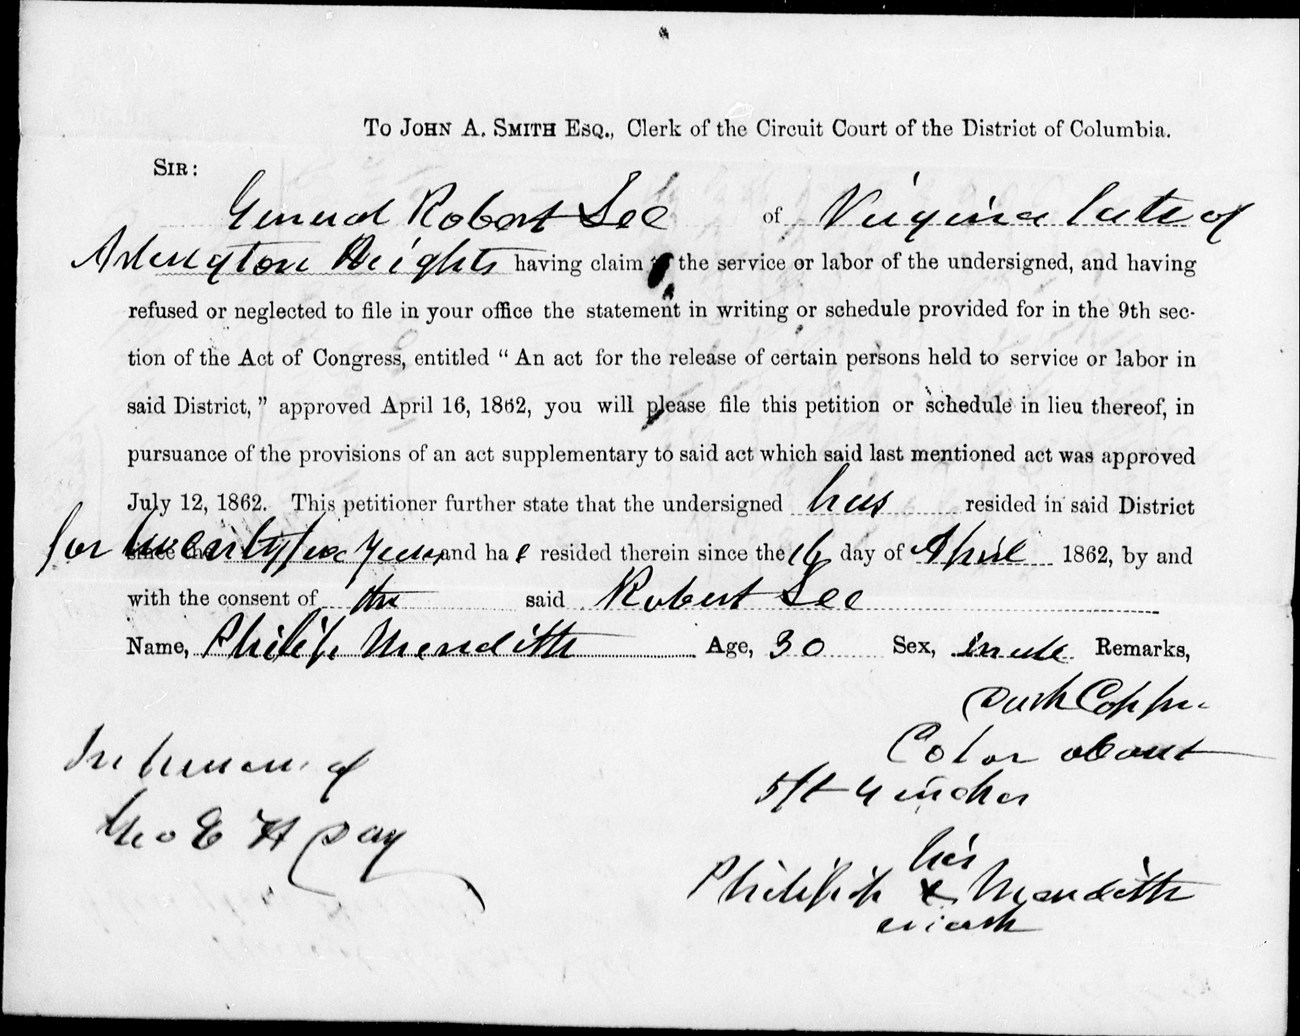 To John A. Smith Esq., Clerk of the Circuit Court of the District of Columbia.
Sir:
General Robert Lee of Virginia late of
Arlington Heights having claim to the service or labor of the undersigned, and having
refused or neglected to file in your office the statement in writing or schedule provided for in the 9th sec-
tion of the Act of Congress, entitled “ An act for the release of certain persons held to service or labor in
said District, ” approved April 16, 1862, you will please file this petition or schedule in lieu thereof, in
pursuance of the provisions of an act supplementary to said act which said last mentioned act was approved
July 12, 1862. This petitioner further state that the undersigned has resided in said District
for since the Years and has resided therein since the 16 day of April 1862, by and
with the consent of the said Robert Lee
Name, Philip Meredith Age, 30 Sex, male Remarks,
Dark Copper
Color about
5ft 4 inches
In presence of
Geo E H Day
his
Philip X Meredith
mark